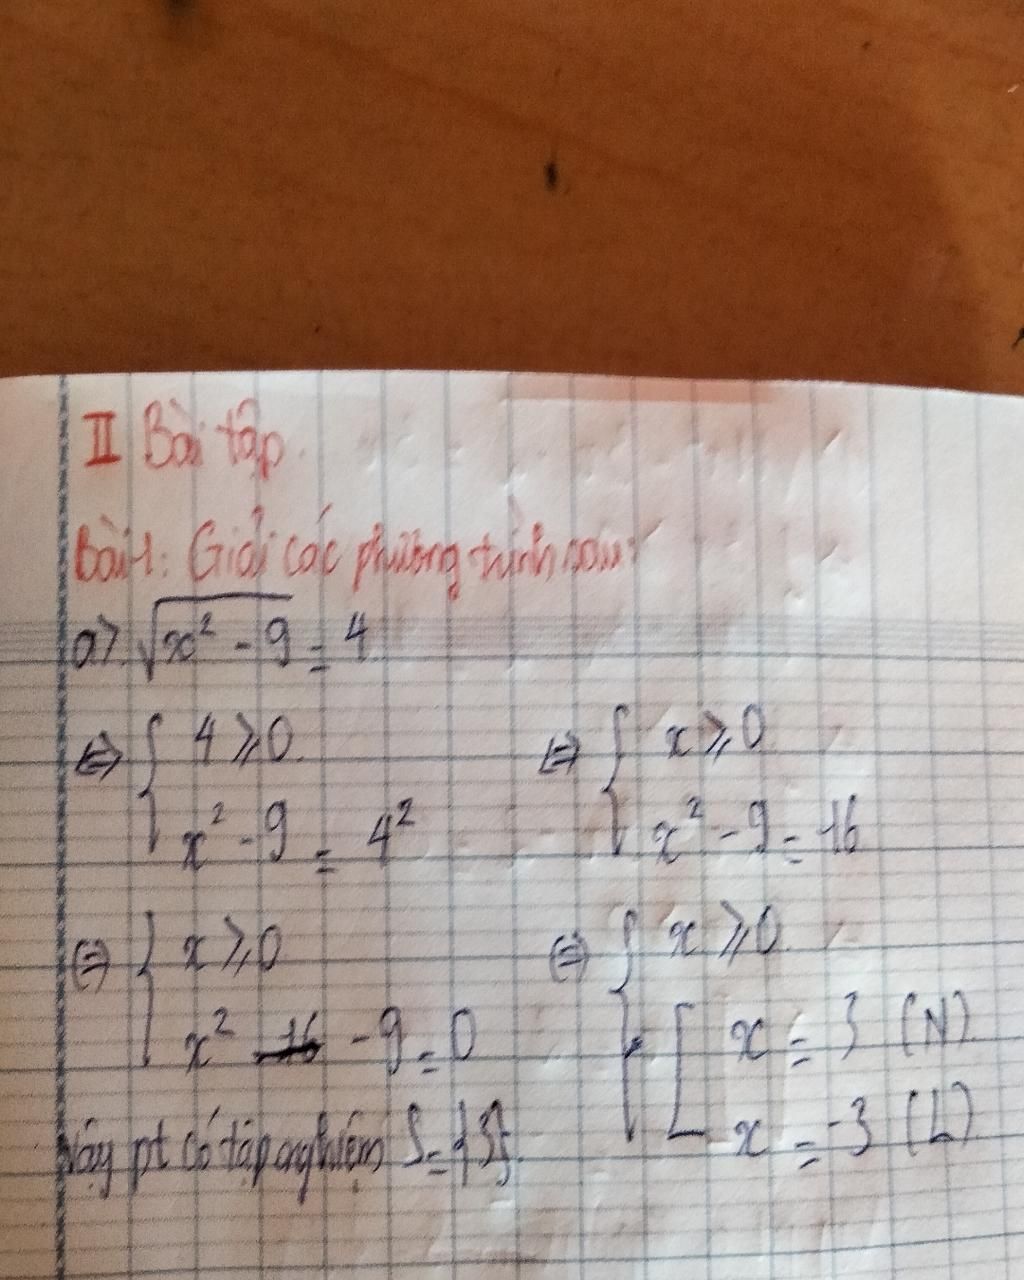 II Bài tập.
Bài 1: Giải các phương trình sau:
a>. √(x² - 9) = 4
⇔ { 4 ≥ 0. ⇔ { x ≥ 0
x² - 9 = 4² x² - 9 = 16
⇔ { x ≥ 0 ⇔ { x ≥ 0.
x² - 9 = 0 [ x = 3 (N).
x = -3 (L)
Vậy pt có tập nghiệm S = {3}.